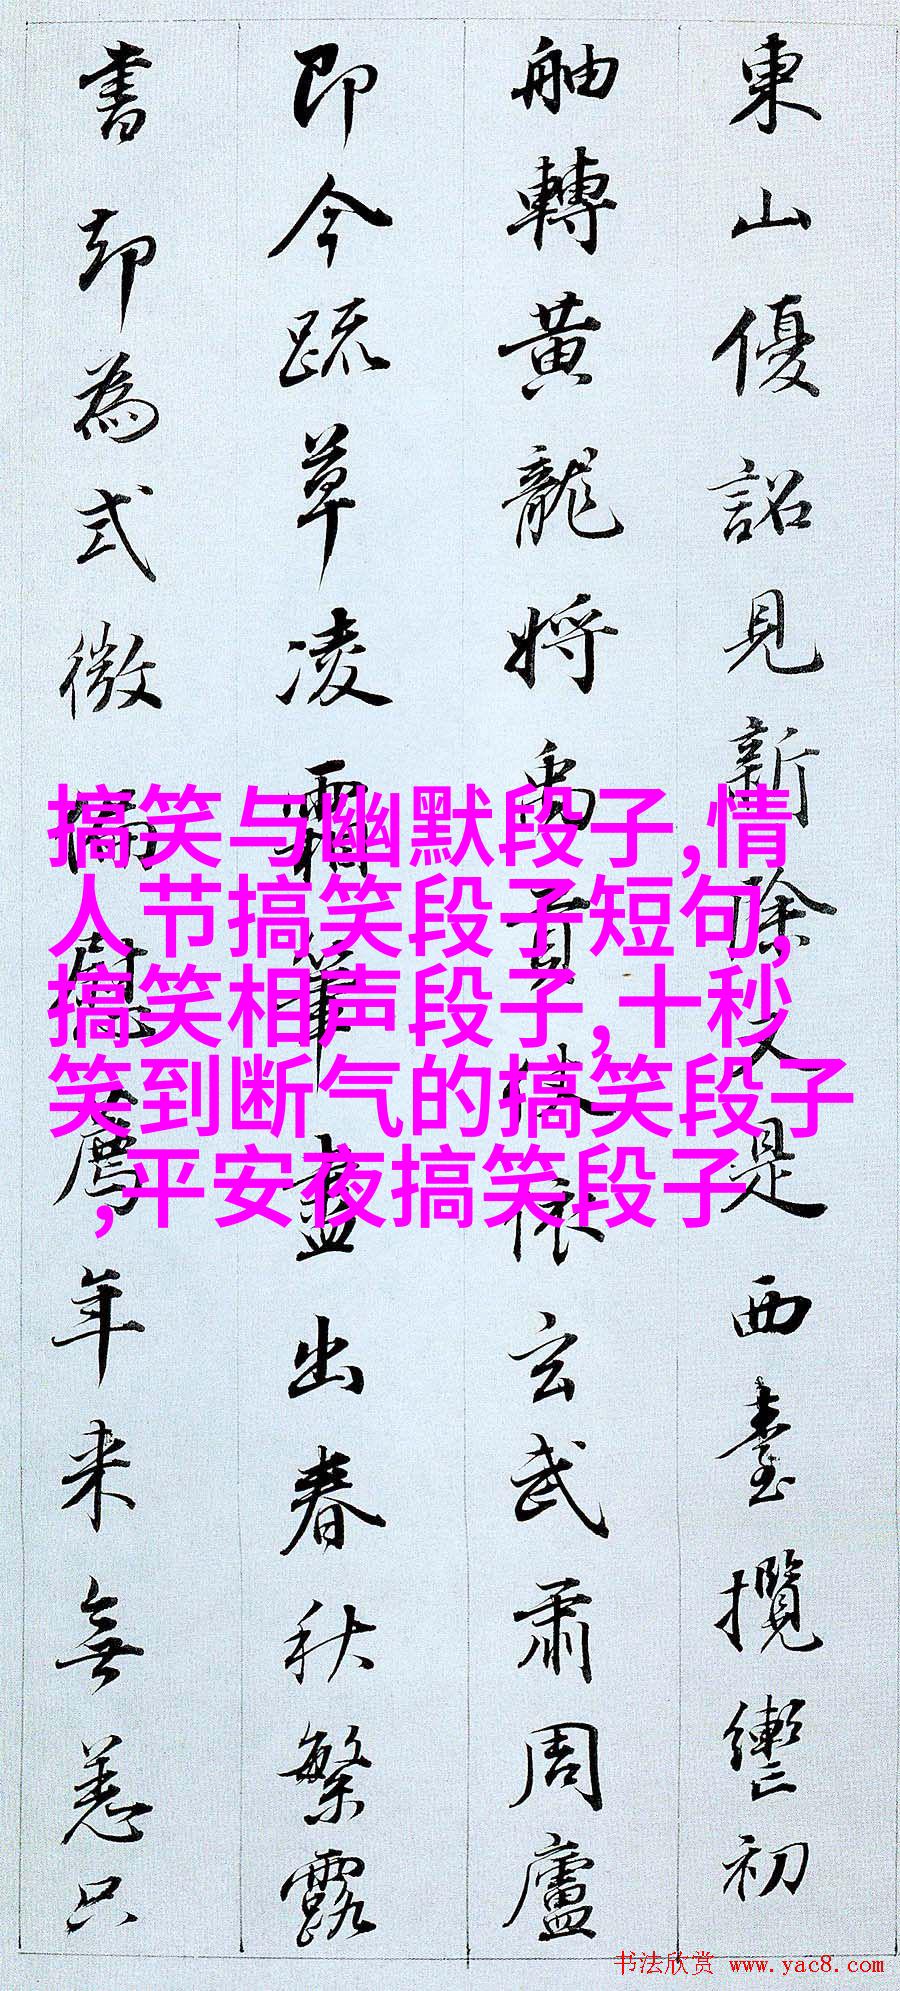 東山優詔見新除又是西臺攬轡初
舳轉黃龍將禹貢玄武肅周廬
即今疏草凌霜筆盡出春秋繁露
書却為式微偏慰薦年来無恙只
搞笑与幽默段子,情
人节搞笑段子短句,
搞笑相声段子,十秒
笑到断气的搞笑段子
,平安夜搞笑段子
书法欣赏 www.yac8.com